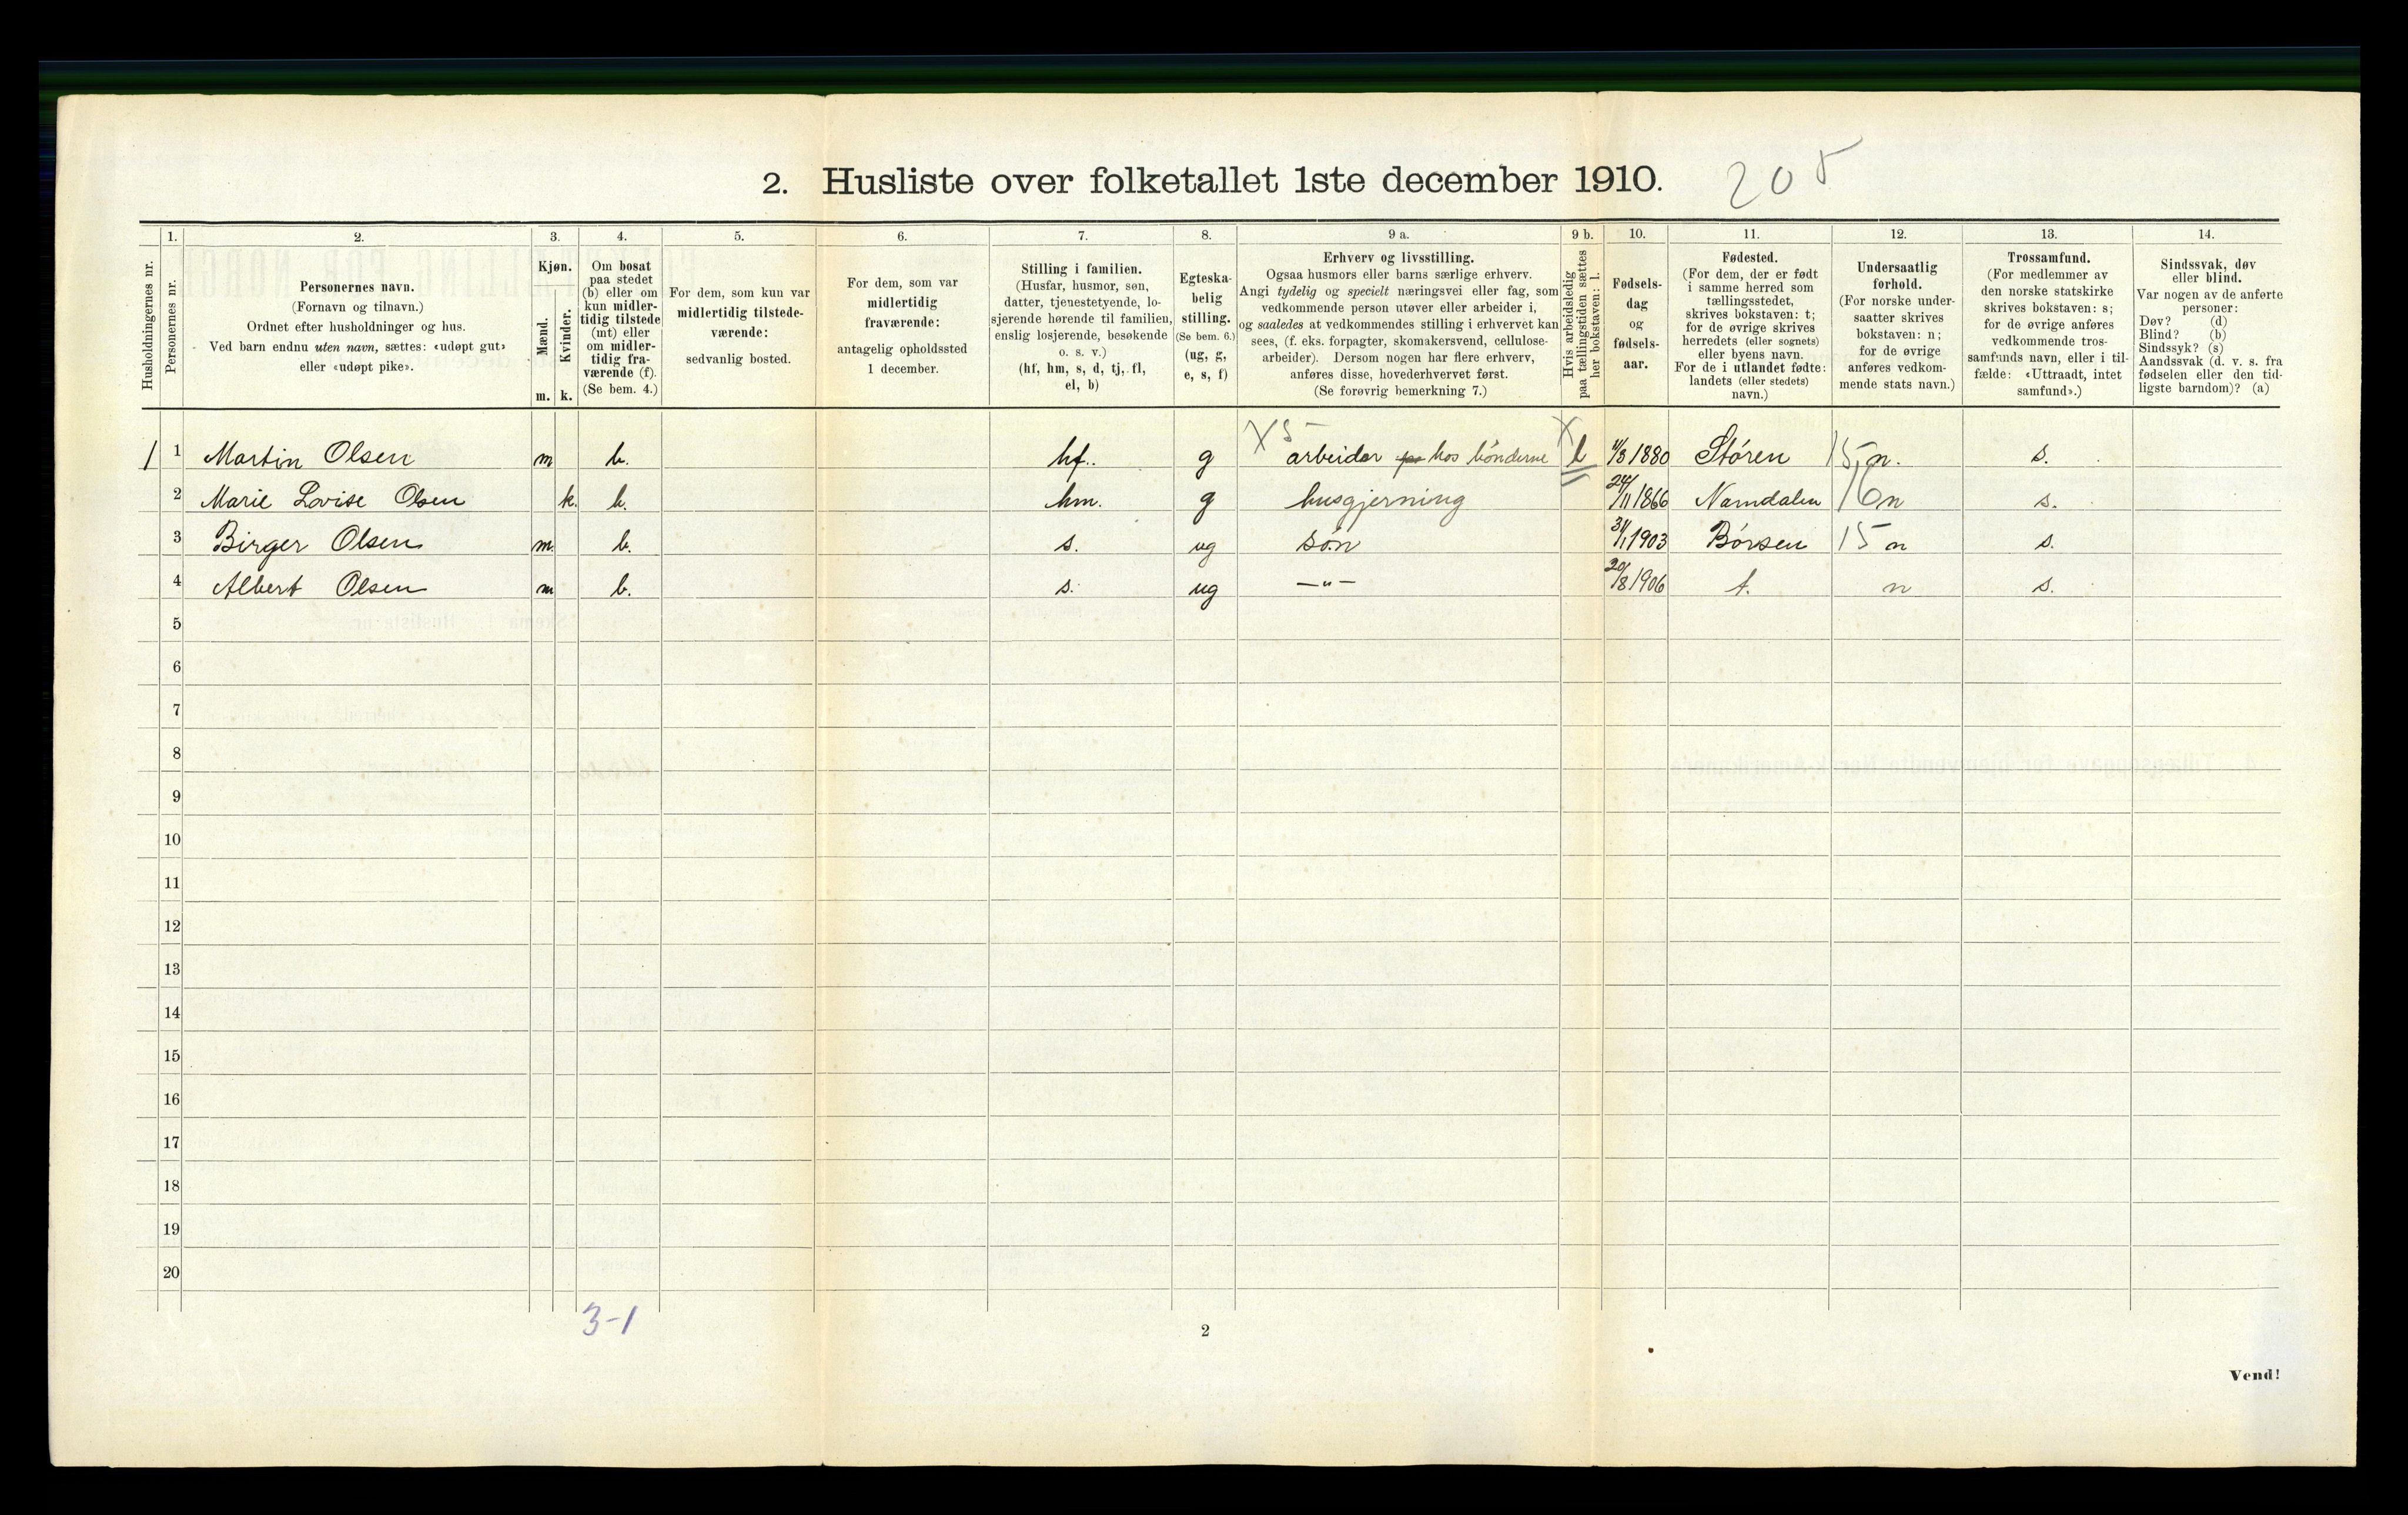 2. Husliste over folketallet 1ste december 1910. 205
1. 2. 3. 4. 5. 6. 7. 8. 9 a. 9 b. 10. 11. 12. 13. 14.
Husholdningernes nr.
Personernes nr.
Personernes navn.
(Fornavn og tilnavn.)
Ordnet efter husholdninger og hus.
Ved barn endnu uten navn, sættes: «udøpt gut»
eller «udøpt pike».
Kjøn.
Mænd.
Kvinder.
m. k.
Om bosat
paa stedet
(b) eller om
kun midler-
tidig tilstede
(mt) eller
om midler-
tidig fra-
værende (f).
(Se bem. 4.)
For dem, som kun var
midlertidig tilstede-
værende:
sedvanlig bosted.
For dem, som var
midlertidig
fraværende:
antagelig opholdssted
1 december.
Stilling i familien.
(Husfar, husmor, søn,
datter, tjenestetyende, lo-
sjerende hørende til familien,
enslig losjerende, besøkende
o. s. v.)
(hf, hm, s, d, tj, fl,
el, b)
Egteska-
belig
stilling.
(Se bem. 6.)
(ug, g,
e, s, f)
Erhverv og livsstilling.
Ogsaa husmors eller barns særlige erhverv.
Angi tydelig og specielt næringsvei eller fag, som
vedkommende person utøver eller arbeider i,
og saaledes at vedkommendes stilling i erhvervet kan
sees, (f. eks. forpagter, skomakersvend, cellulose-
arbeider). Dersom nogen har flere erhverv,
anføres disse, hovederhvervet først.
(Se forøvrig bemerkning 7.)
Hvis arbeidsledig
paa tællingstiden sættes
her bokstaven: l.
Fødsels-
dag
og
fødsels-
aar.
Fødested.
(For dem, der er født
i samme herred som
tællingsstedet,
skrives bokstaven: t;
for de øvrige skrives
herredets (eller sognets)
eller byens navn.
For de i utlandet fødte:
landets (eller stedets)
navn.)
Undersaatlig
forhold.
(For norske under-
saatter skrives
bokstaven: n;
for de øvrige
anføres vedkom-
mende stats navn.)
Trossamfund.
(For medlemmer av
den norske statskirke
skrives bokstaven: s;
for de øvrige anføres
vedkommende tros-
samfunds navn, eller i til-
fælde: «Uttraadt, intet
samfund».)
Sindssvak, døv
eller blind.
Var nogen av de anførte
personer:
Døv? (d)
Blind? (b)
Sindssyk? (s)
Aandssvak (d. v. s. fra
fødselen eller den tid-
ligste barndom)? (a)
X 5 X
1 1 Martin Olsen m b. hf. g arbeider hos bønderne l 4/3 1880 Støren 15 n. s.
2 Marie Lovise Olsen k. b. hm. g husgjerning 24/11 1866 Namdalen 16 n s.
3 Birger Olsen m. b. s. ug søn 31/1 1903 Børsen 15 n s.
4 Albert Olsen m b. s. ug —"— 20/8 1906 t. n s.
5
6
7
8
9
10
11
12
13
14
15
16
17
18
19
20
3-1
2
Vend!